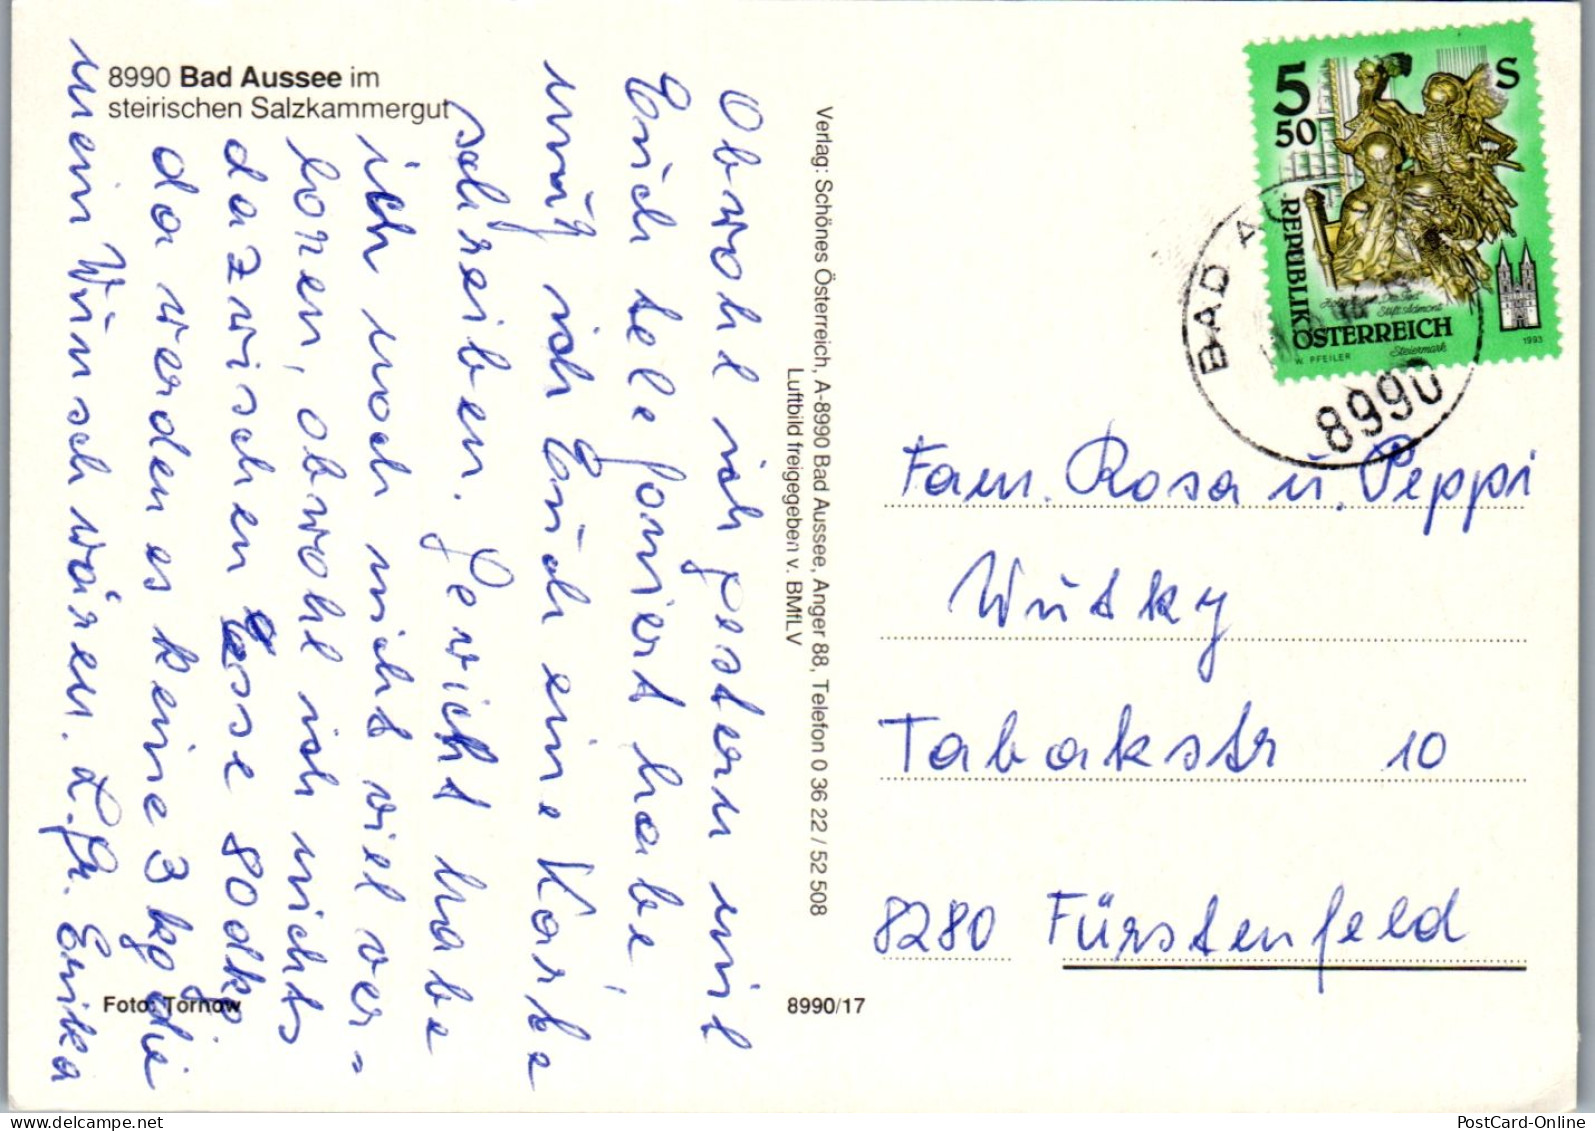 8990 Bad Aussee im
steirischen Salzkammergut
Obwohl ich gestern mit
Euch telefoniert habe,
muß ich Euch eine Karte
schreiben. Gewicht habe
ich noch nicht viel ver=
loren, obwohl ich nichts
dazwischen esse 80dkg.
da werden es keine 3 kg die
mein Wunsch wären. L. Gr. Erika
Foto: Tornow
Verlag: Schönes Österreich, A-8990 Bad Aussee, Anger 88, Telefon 0 36 22 / 52 508
Luftbild freigegeben v. BMfLV
8990/17
5 50 S
REPUBLIK
ÖSTERREICH
Stift St. Lambrecht
Steiermark
W. PFEILER
1993
BAD
8990
Fam. Rosa u. Peppi
Wutky
Tabakstr 10
8280 Fürstenfeld
PostCard-Online